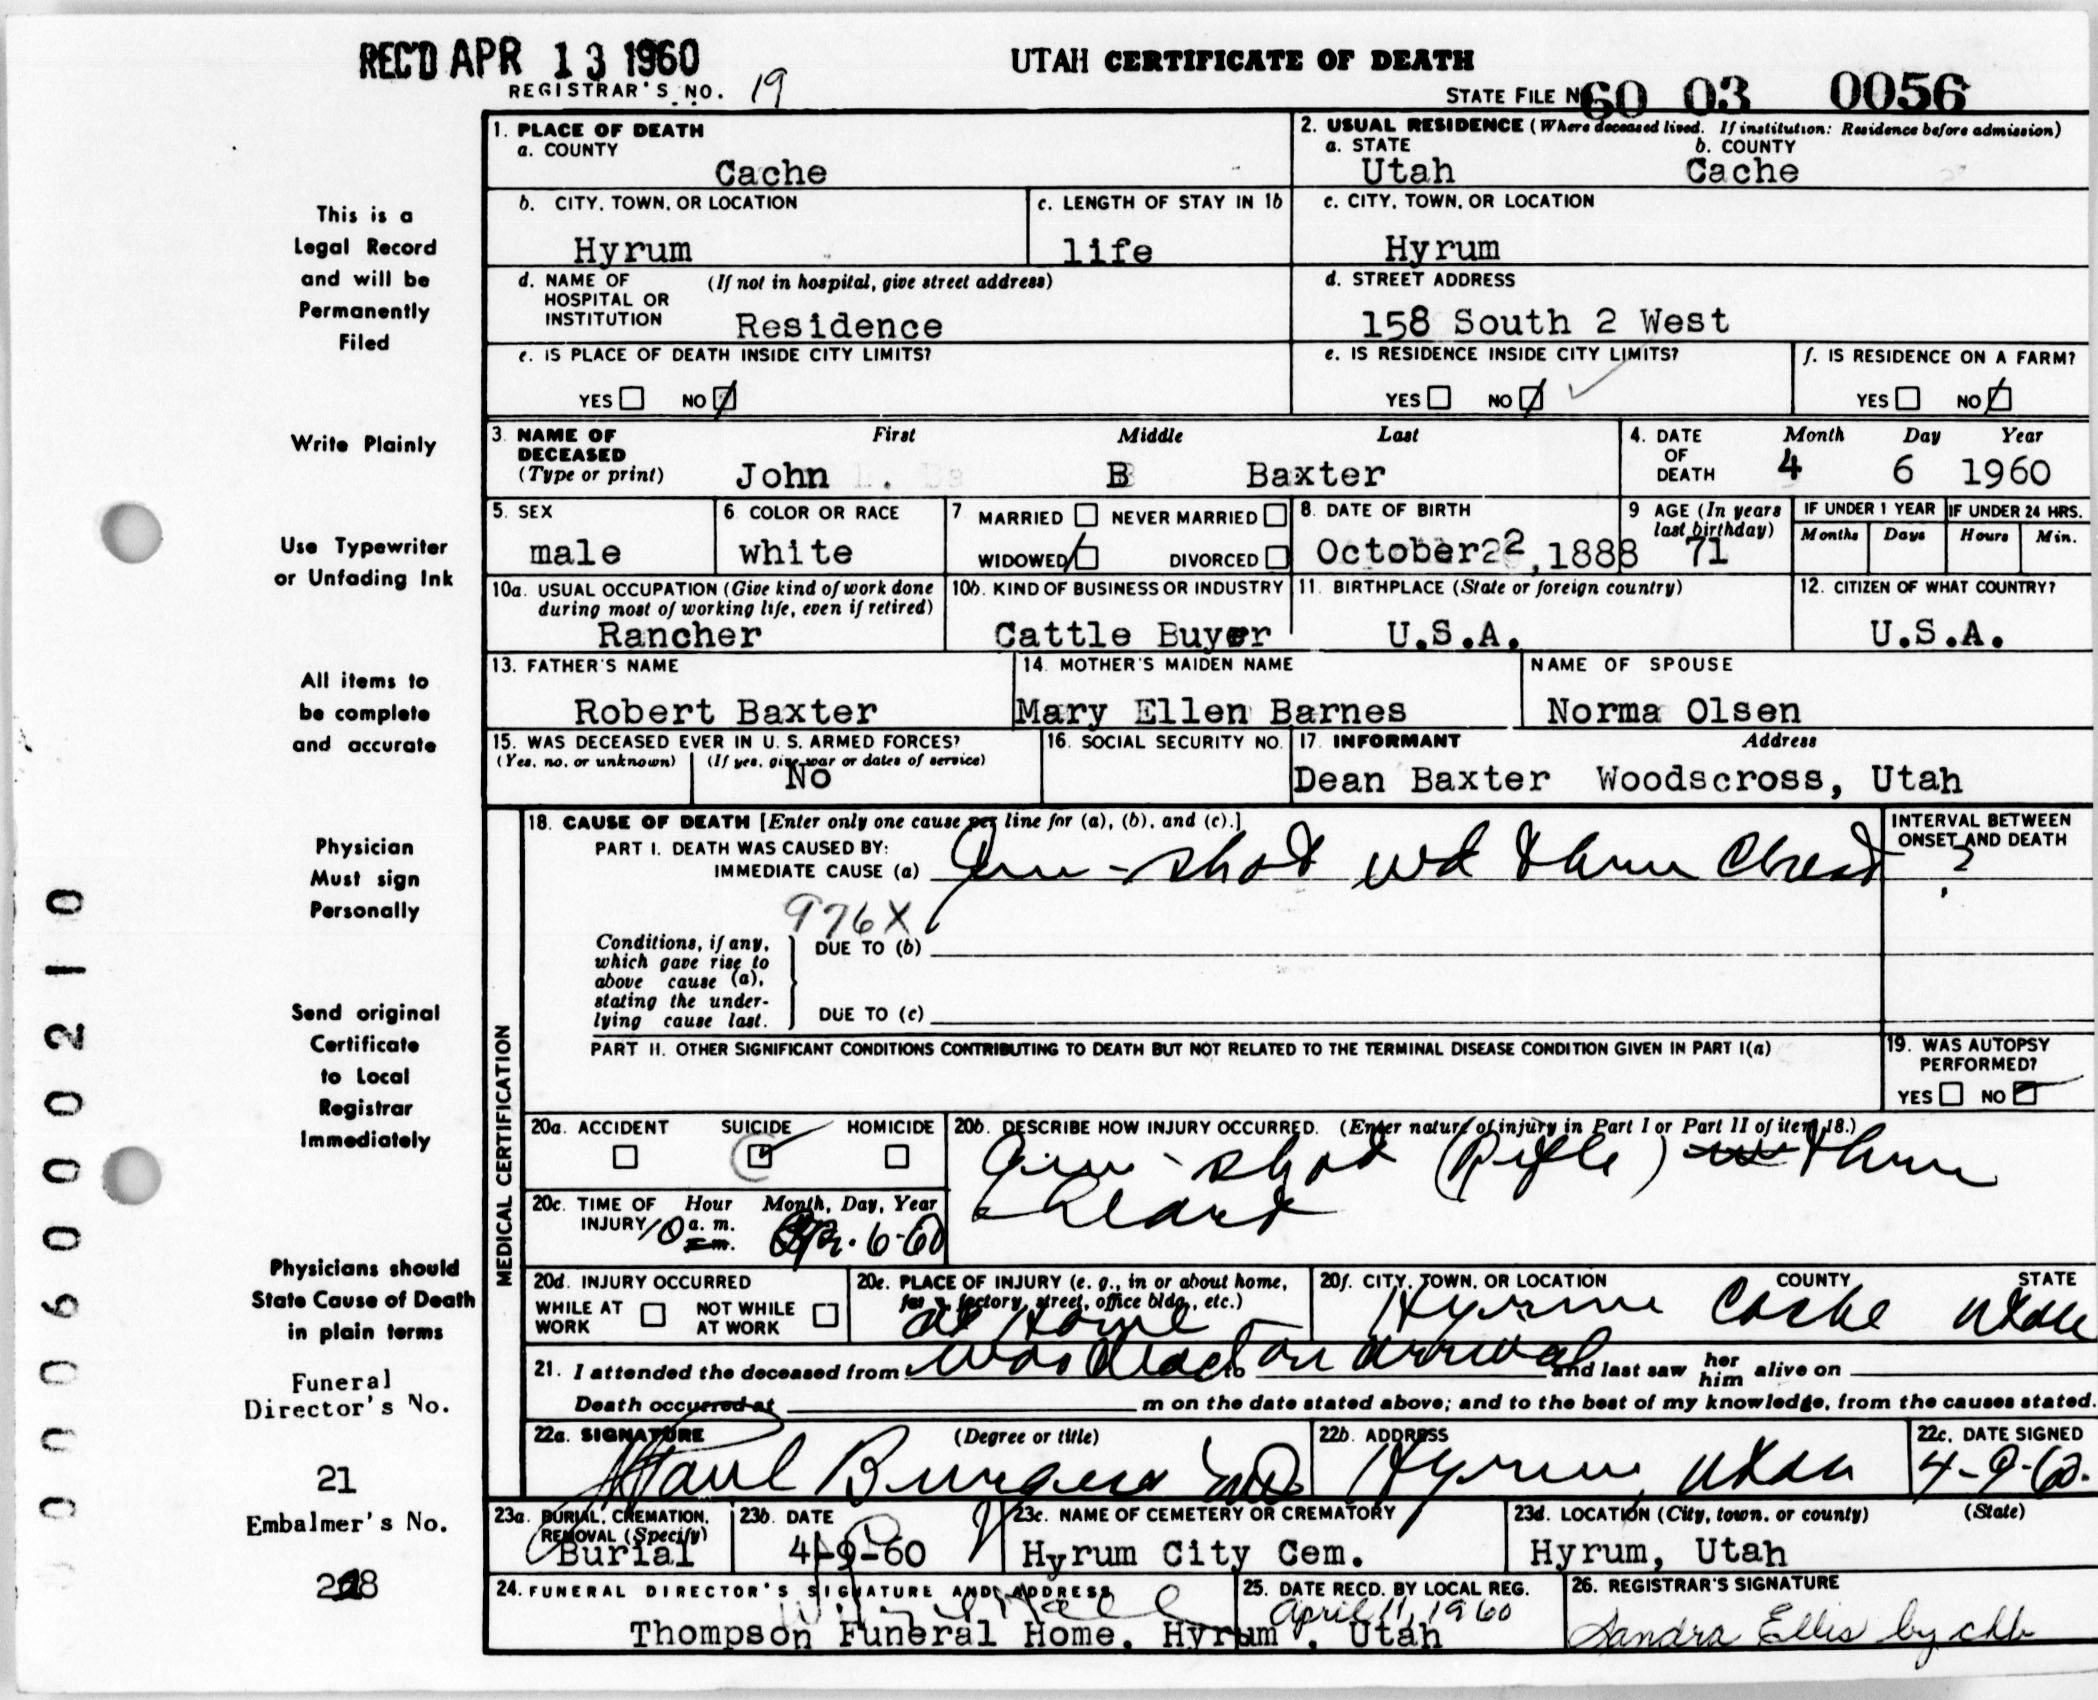 REC'D APR 13 1960
UTAH CERTIFICATE OF DEATH
REGISTRAR'S NO. 19
STATE FILE NO 60 03 0056
This is a
Legal Record
and will be
Permanently
Filed
Write Plainly
Use Typewriter
or Unfading Ink
All items to
be complete
and accurate
Physician
Must sign
Personally
Send original
Certificate
to Local
Registrar
Immediately
Physicians should
State Cause of Death
in plain terms
Funeral
Director's No.
21
Embalmer's No.
0000600210
1. PLACE OF DEATH
a. COUNTY
Cache
2. USUAL RESIDENCE (Where deceased lived. If institution: Residence before admission)
a. STATE b. COUNTY
Utah Cache
b. CITY, TOWN, OR LOCATION
Hyrum
c. LENGTH OF STAY IN 1b
life
c. CITY, TOWN, OR LOCATION
Hyrum
d. NAME OF (If not in hospital, give street address)
HOSPITAL OR
INSTITUTION Residence
d. STREET ADDRESS
158 South 2 West
e. IS PLACE OF DEATH INSIDE CITY LIMITS?
YES NO
e. IS RESIDENCE INSIDE CITY LIMITS?
YES NO
f. IS RESIDENCE ON A FARM?
YES NO
3. NAME OF First Middle Last
DECEASED
(Type or print) John B Baxter
4. DATE Month Day Year
OF
DEATH 4 6 1960
5. SEX
male
6. COLOR OR RACE
white
7. MARRIED NEVER MARRIED
WIDOWED DIVORCED
8. DATE OF BIRTH
October 22, 1888
9. AGE (In years
last birthday)
71
IF UNDER 1 YEAR
Months Days
IF UNDER 24 HRS.
Hours Min.
10a. USUAL OCCUPATION (Give kind of work done
during most of working life, even if retired)
Rancher
10b. KIND OF BUSINESS OR INDUSTRY
Cattle Buyer
11. BIRTHPLACE (State or foreign country)
U.S.A.
12. CITIZEN OF WHAT COUNTRY?
U.S.A.
13. FATHER'S NAME
Robert Baxter
14. MOTHER'S MAIDEN NAME
Mary Ellen Barnes
NAME OF SPOUSE
Norma Olsen
15. WAS DECEASED EVER IN U. S. ARMED FORCES?
(Yes, no, or unknown) (If yes, give war or dates of service)
No
16. SOCIAL SECURITY NO.
17. INFORMANT Address
Dean Baxter Woodscross, Utah
MEDICAL CERTIFICATION
18. CAUSE OF DEATH [Enter only one cause per line for (a), (b), and (c).]
PART I. DEATH WAS CAUSED BY:
IMMEDIATE CAUSE (a) Gun-shot wd thru Chest
INTERVAL BETWEEN
ONSET AND DEATH
?
976X
Conditions, if any,
which gave rise to
above cause (a),
stating the under-
lying cause last.
DUE TO (b)
DUE TO (c)
PART II. OTHER SIGNIFICANT CONDITIONS CONTRIBUTING TO DEATH BUT NOT RELATED TO THE TERMINAL DISEASE CONDITION GIVEN IN PART I(a)
19. WAS AUTOPSY
PERFORMED?
YES NO
20a. ACCIDENT SUICIDE HOMICIDE
20b. DESCRIBE HOW INJURY OCCURRED. (Enter nature of injury in Part I or Part II of item 18.)
Gun-shot (Rifle) thru
heart
20c. TIME OF Hour Month, Day, Year
INJURY 10 a. m. Apr. 6-60
p. m.
20d. INJURY OCCURRED
WHILE AT NOT WHILE
WORK AT WORK
20e. PLACE OF INJURY (e. g., in or about home,
farm, factory, street, office bldg., etc.)
at Home
20f. CITY, TOWN, OR LOCATION COUNTY STATE
Hyrum Cache Utah
21. I attended the deceased from was dead on arrival to and last saw her him alive on
Death occurred at m on the date stated above; and to the best of my knowledge, from the causes stated.
22a. SIGNATURE (Degree or title)
Paul Burgess MD
22b. ADDRESS
Hyrum, Utah
22c. DATE SIGNED
4-9-60.
23a. BURIAL, CREMATION,
REMOVAL (Specify)
Burial
23b. DATE
4-9-60
23c. NAME OF CEMETERY OR CREMATORY
Hyrum City Cem.
23d. LOCATION (City, town, or county) (State)
Hyrum, Utah
24. FUNERAL DIRECTOR'S SIGNATURE AND ADDRESS
Thompson Funeral Home, Hyrum, Utah
25. DATE RECD. BY LOCAL REG.
April 11, 1960
26. REGISTRAR'S SIGNATURE
Sandra Ellis by chb